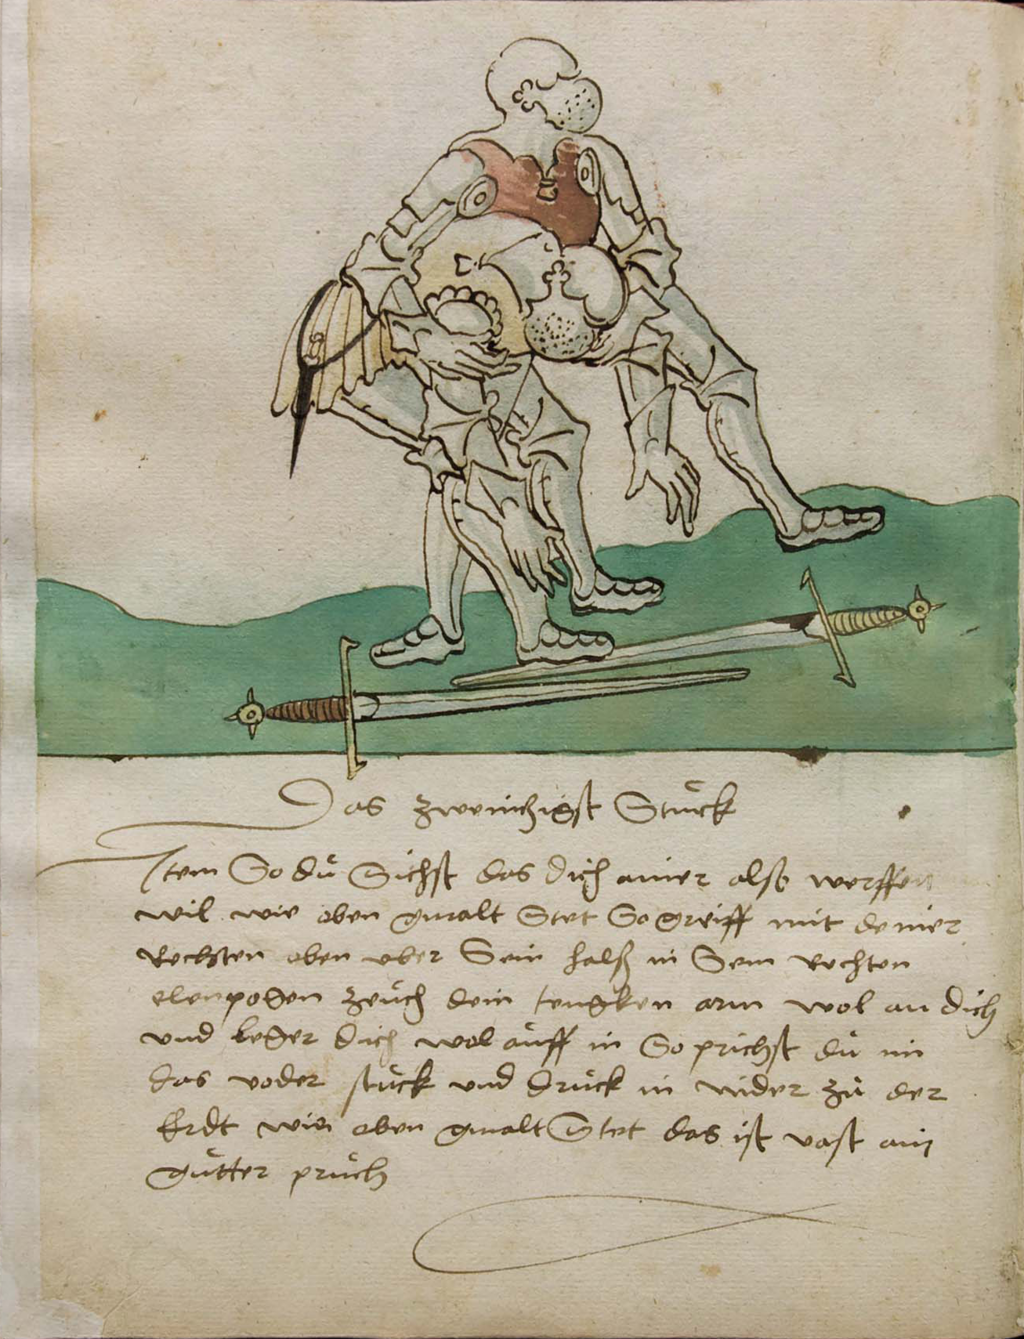 Das zwenczigst Stuck
Item So du Sichst das dich ainer also werffen
wil wie oben gmalt Stet So greiff mit deiner
Rechten oben vber Sein halsß in Sein Rechten
elenpogen zeuch dein tengken arm wol an dich
und leger dich wol auff in So prichst du im
das voder stuck vnd druck in nider zu der
Erdt wie oben gmalt Stet das ist vast ain
gutter pruch